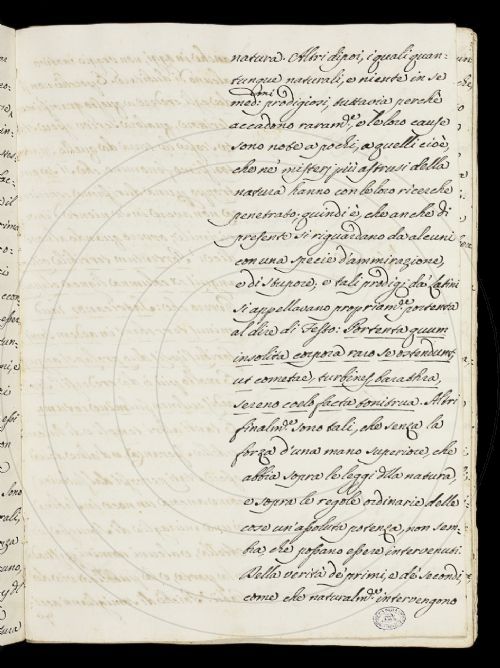 natura. Altri dipoi, i quali quan-
tunque naturali, e niente in se
med:simi prodigiosi, tuttavia perchè
accadono raram.te, e le loro cause
sono note a pochi, a quelli cioè,
che ne' misterj più astrusi della
natura hanno con le loro ricerche
penetrato, quindi è, che anche di
presente si riguardano da alcuni
con una specie d'ammirazione,
e di stupore; e tali prodigj da' Latini
si appellavano propriam.te portenta
al dire di Festo: Portenta quum
insolita corpora raro se ostendunt,
ut cometae, turbines, barathra,
sereno coelo facta tonitrua. Altri
finalm.te sono tali, che senza la
forza d'una mano superiore, che
abbia sopra le leggi della natura,
e sopra le regole ordinarie delle
cose un'assoluta potenza, non sem-
bra che possano essere intervenuti.
Della verità de' primi, e de' secondi
come che naturalm.te intervengono